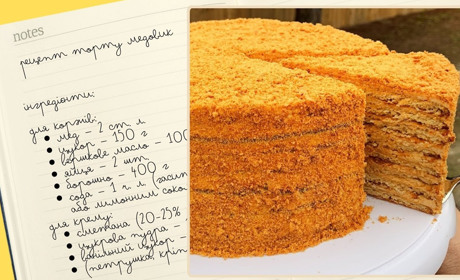 notes
рецепт торту медовик
інгредієнти:
для коржів:
мед – 2 ст. л
цукор – 150 г
вершкове масло – 100
яйця – 2 шт.
борошно – 400 г
сода – 1 ч. л (гасим
або лимонним соко
для крему:
сметана (20-25%
цукрова пудра –
ванільний цукор –
(петрушка, кріп